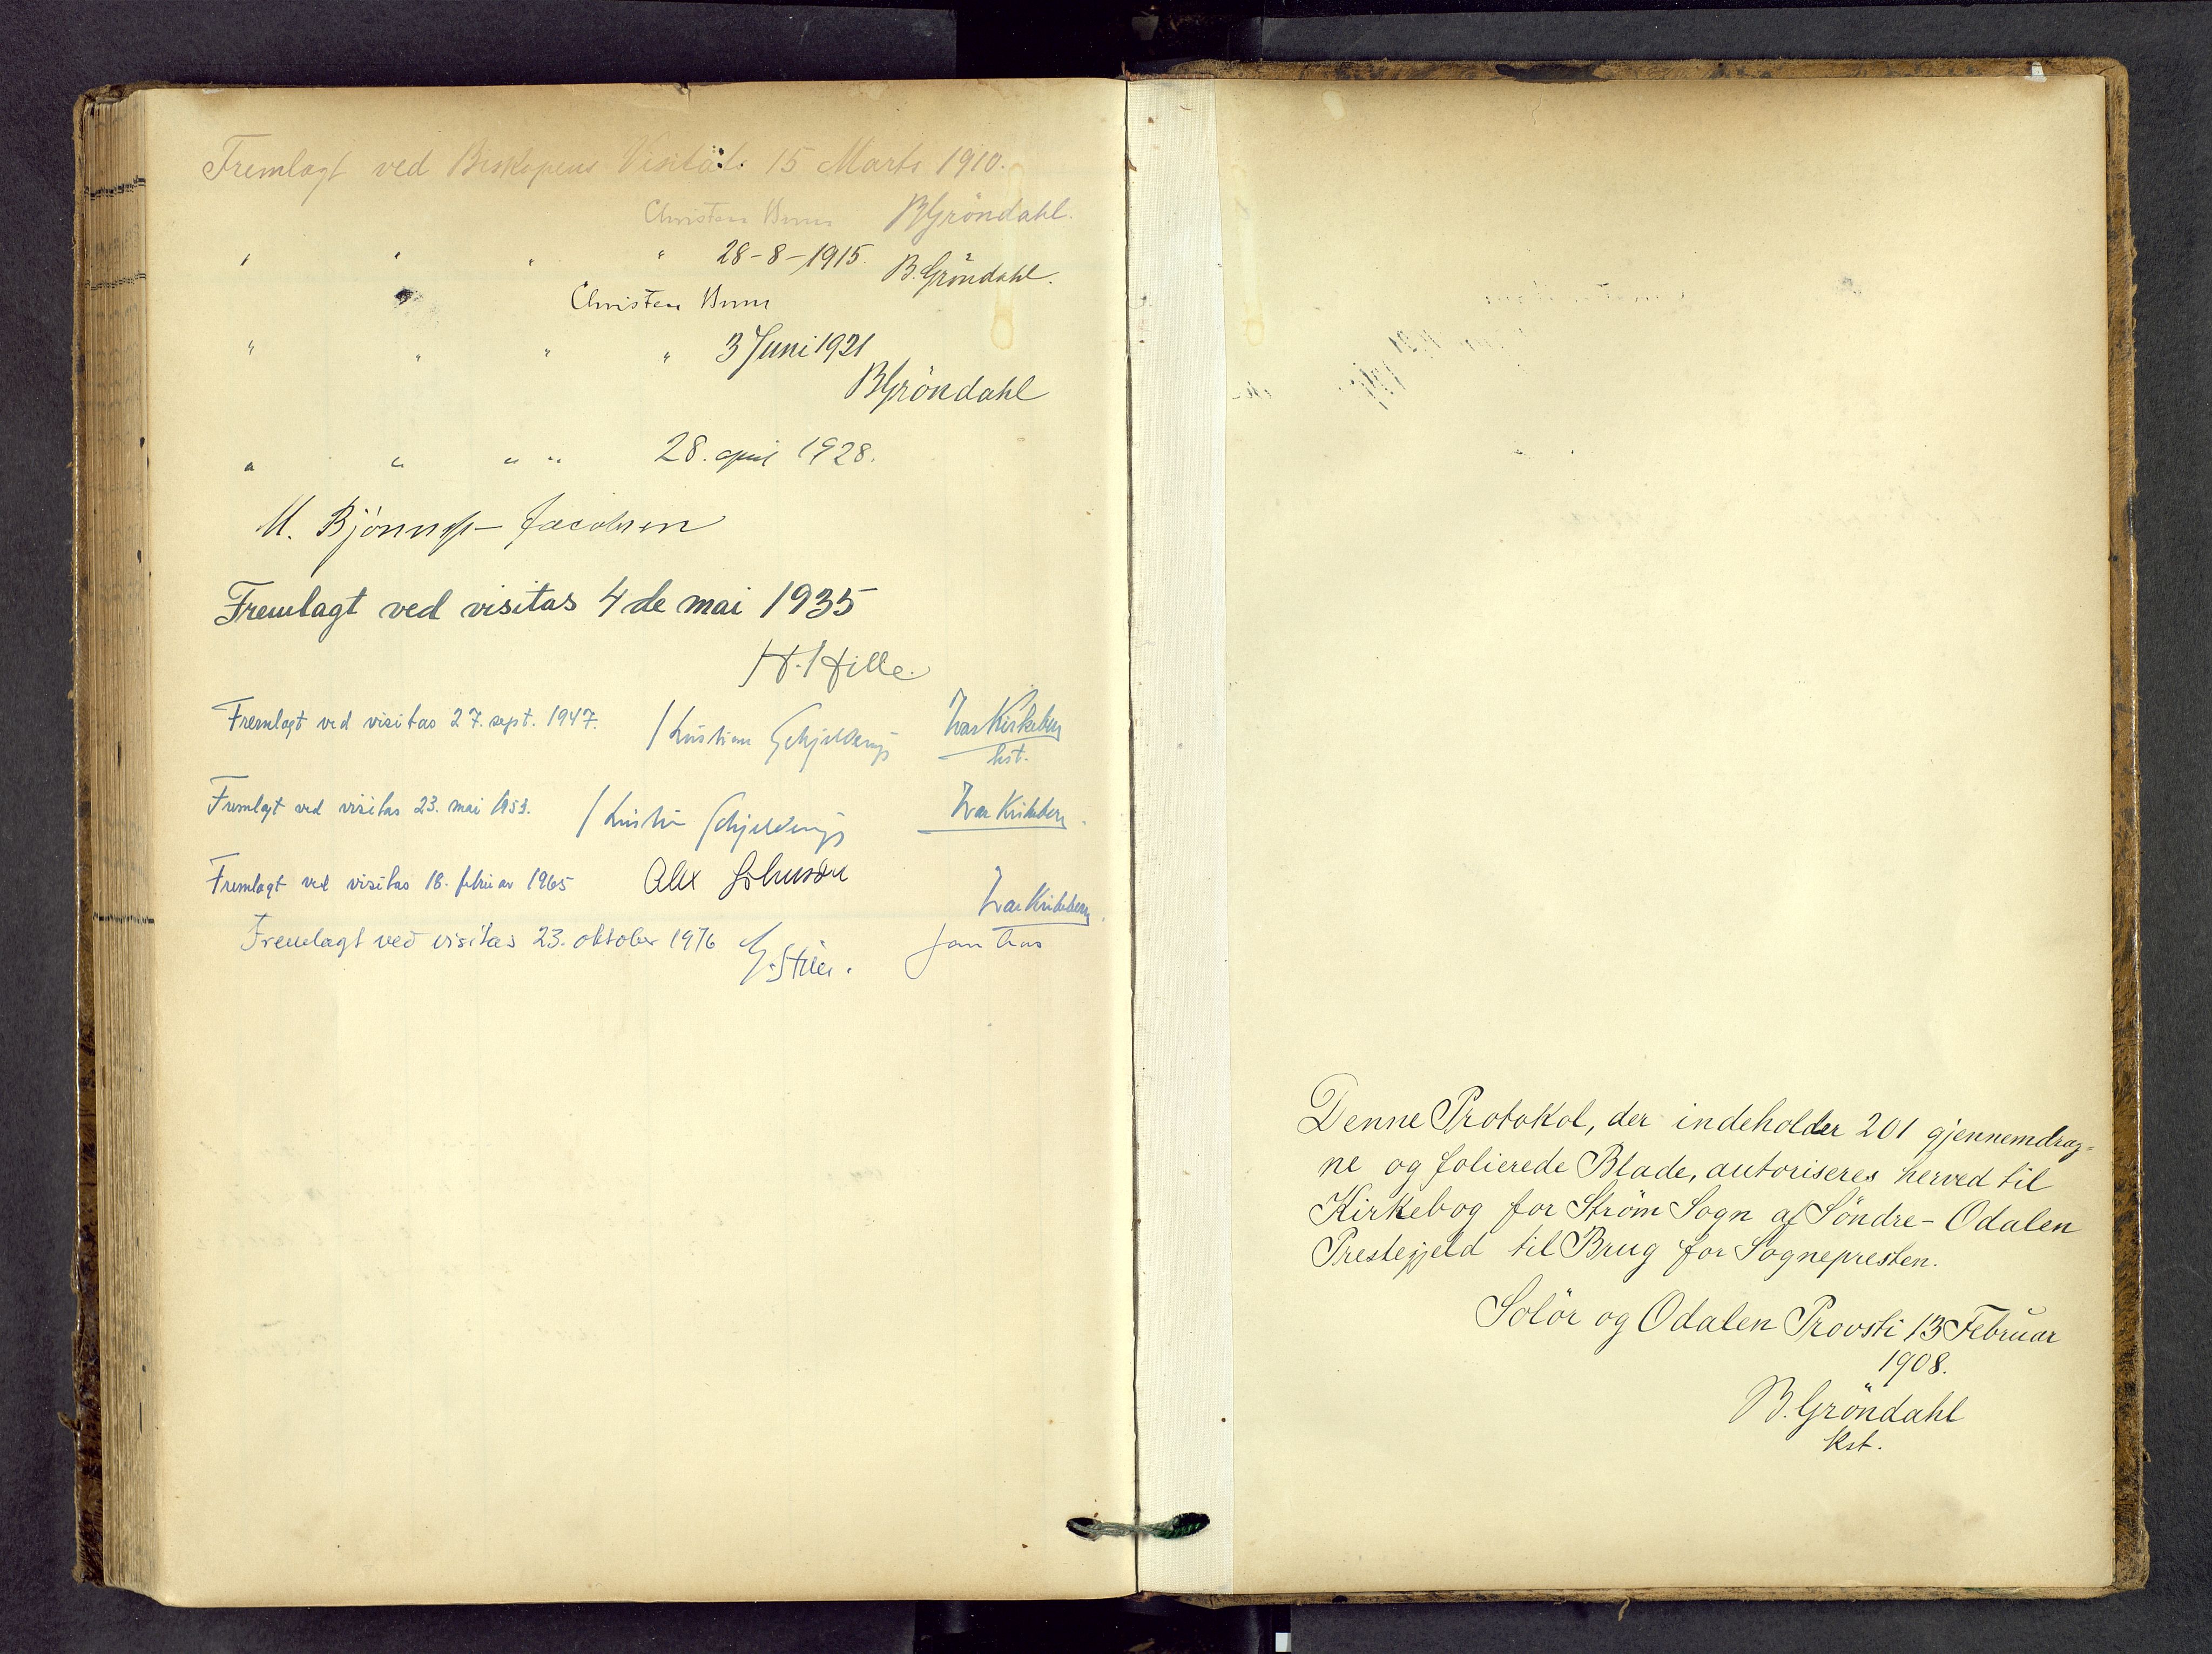 Fremlagt ved Biskopens Visitats 15 Marts 1910.
Christen Brun BGröndahl.
" " " " 28-8-1915. B. Gröndahl.
Christen Brun
" " " " 3 Juni 1921
BGröndahl
" " " " 28. april 1928.
M. Bjönness-Jacobsen
Fremlagt ved visitas 4 de mai 1935
H. Hille.
Fremlagt ved visitas 27. sept. 1947. Kristian Schjelderup Ivar Kirkeberg
kst.
Fremlagt ved visitas 23. mai 1953. Kristian Schjelderup Ivar Kirkeberg.
Fremlagt ved visitas 18. februar 1965 Alex Johnson
Ivar Kirkeberg.
Fremlagt ved visitas 23. oktober 1976
Denne Protokol, der indeholder 201 gjennemdrag=
ne og folierede Blade, autoriseres herved til
Kirkebog for Ström Sogn af Söndre-Odalen
Prestegjeld til Brug for Sognepresten.
Solör og Odalen Provsti 13 Februar
1908.
B. Gröndahl
kst.